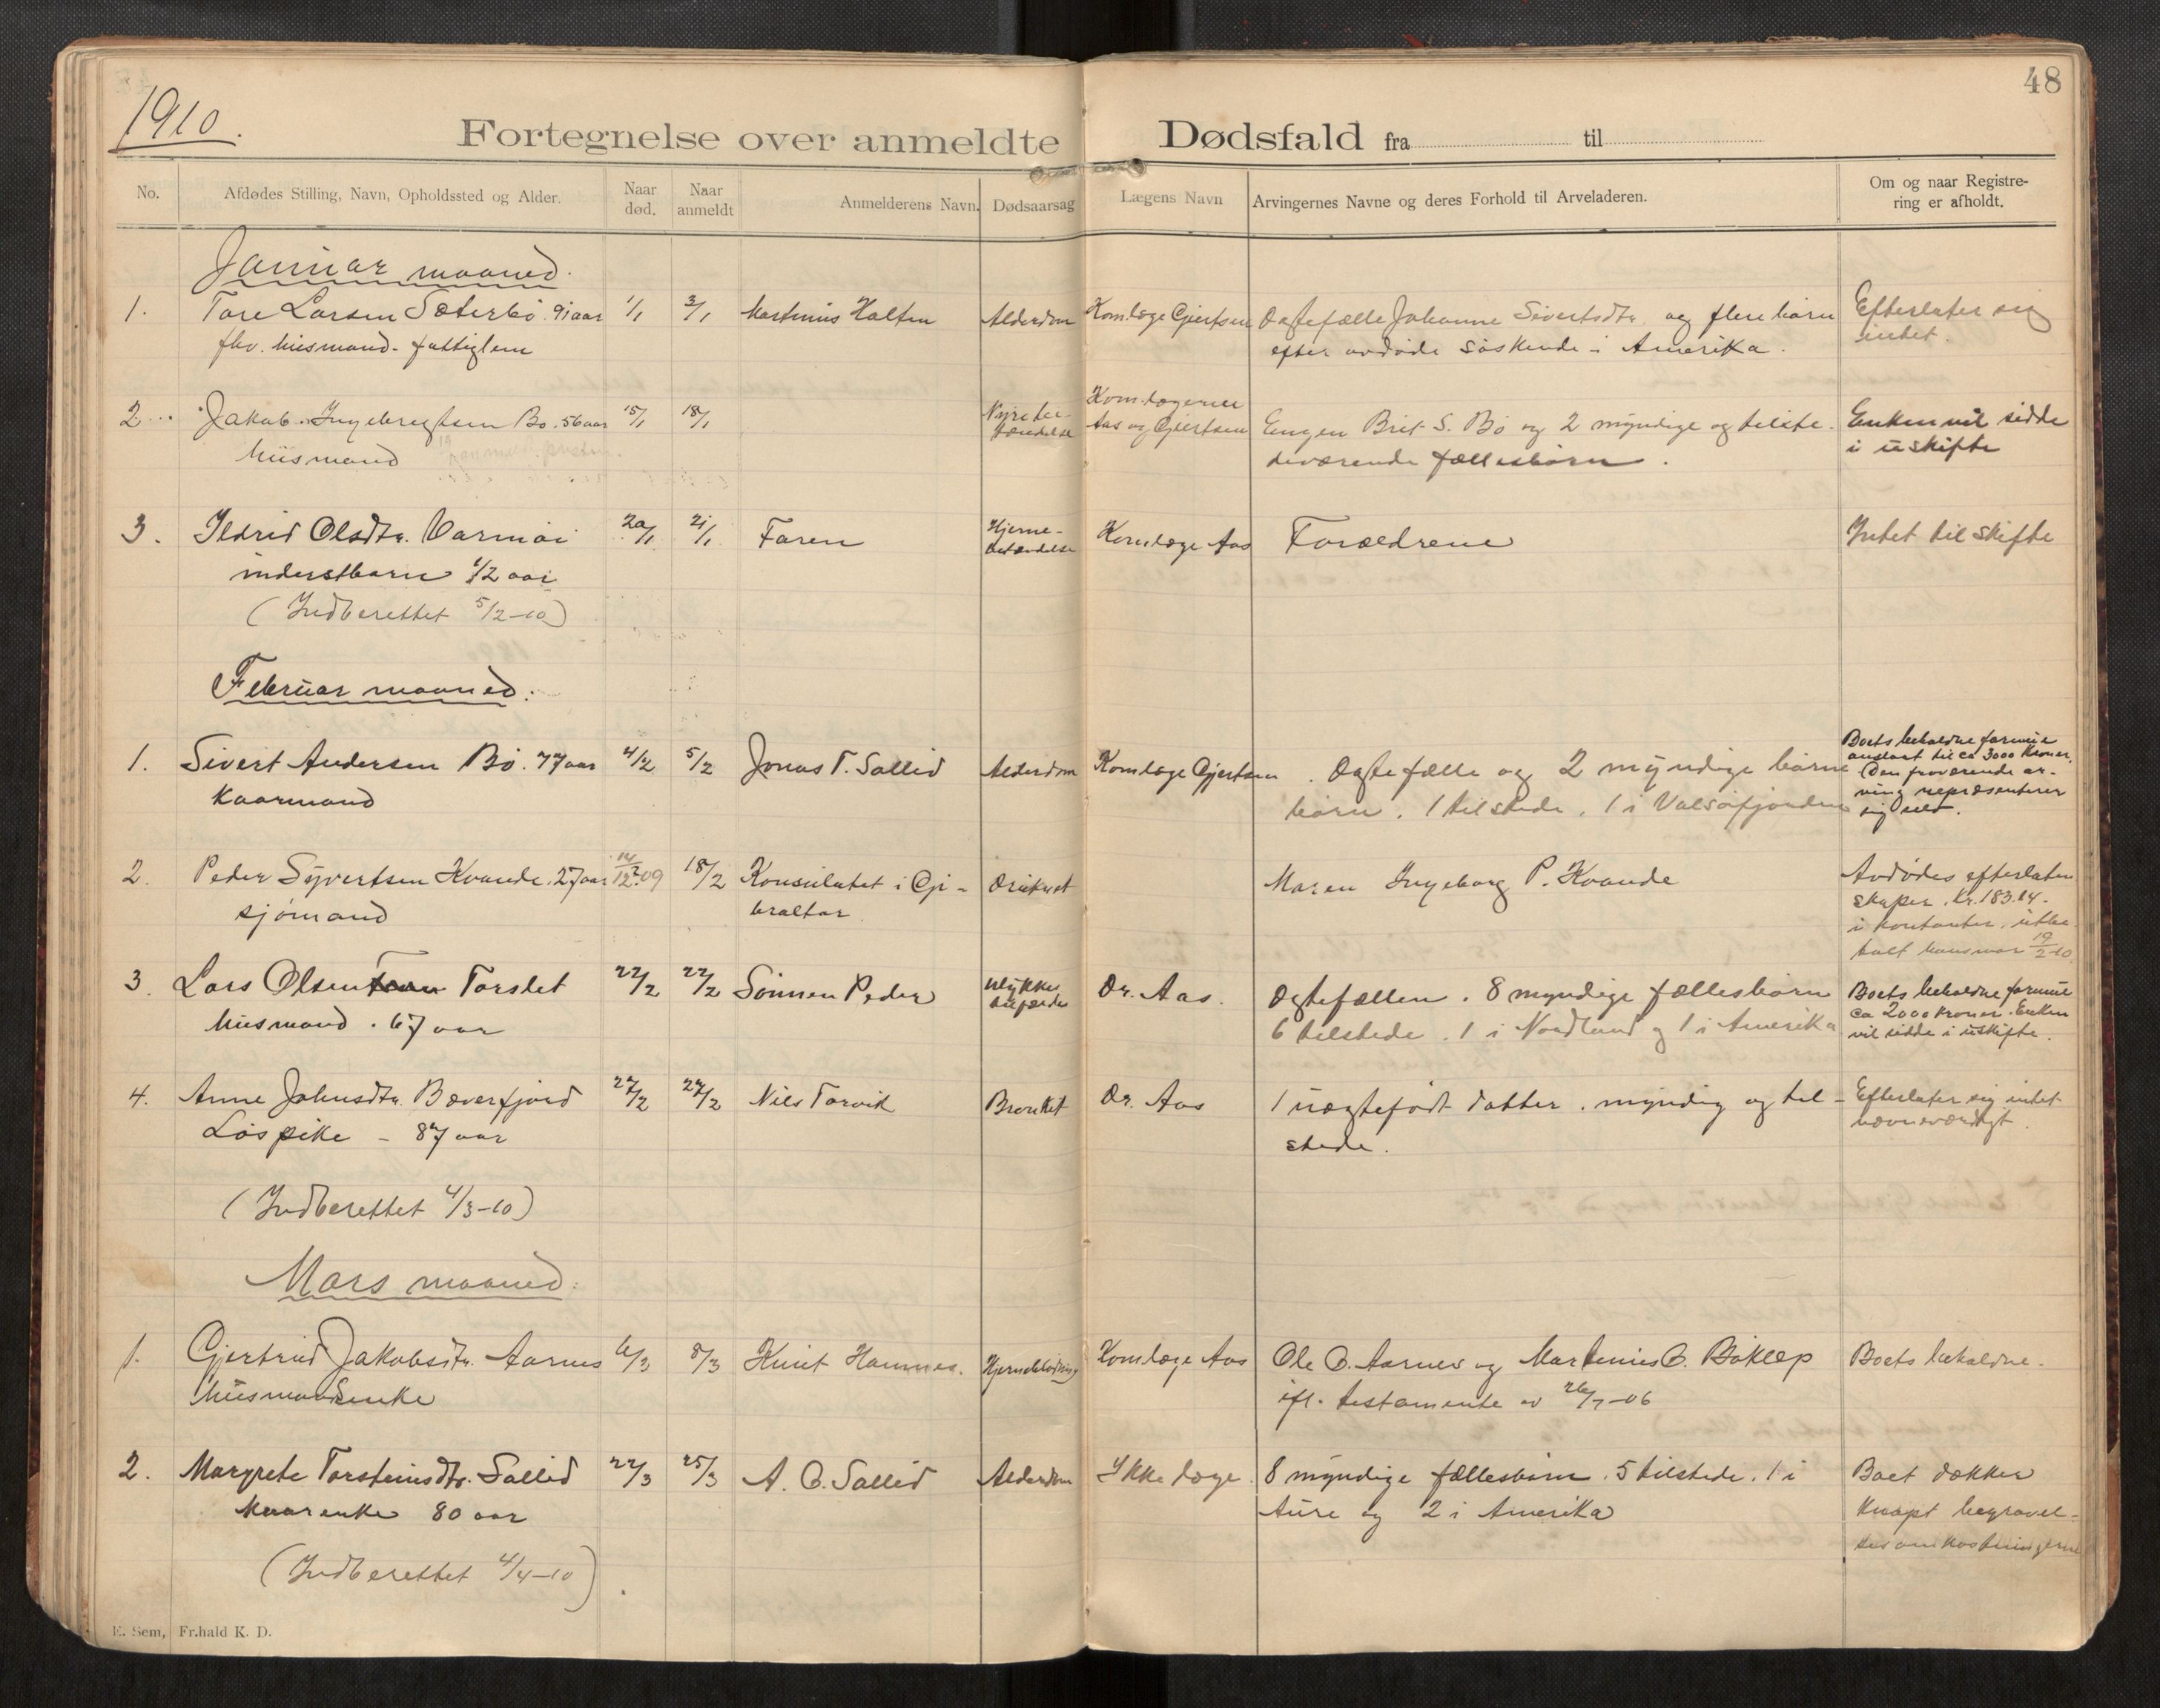 1910.
48
Fortegnelse over anmeldte Dødsfald fra til
No.
Afdødes Stilling, Navn, Opholdssted og Alder.
Naar død.
Naar anmeldt
Anmelderens Navn.
Dødsaarsag
Lægens Navn
Arvingernes Navne og deres Forhold til Arveladeren.
Om og naar Registre-
ring er afholdt.
Januar maaned.
1. Tore Larsen Sæterbø. 91 aar 1/1 3/1 Martinus Halten Alderdom Kom.læge Gjertsen Ægtefælle Johanne Sivertsdtr. og flere børn Efterlater sig
fhv. husmand - fattiglem efter avdøde søskende i Amerika. intet.
2. Jakob Ingebregtsen Bø. 56 aar 15/1 18/1 Nyrebe-
tændelse
Kom.lægerne
Aas og Gjertsen Enken Brit S. Bø og 2 myndige og tilste- Enken vil sidde
husmand deværende fællesbørn. i uskifte
3. Ildrid Olsdtr. Varmøi 20/1 21/1 Faren Hjerne-
betændelse Komlæge Aas Forældrene Intet til skifte
inderstbarn 1/2 aar
(Indberettet 5/2-10)
Februar maaned:
1. Sivert Andersen Bø. 77 aar 4/2 5/2 Jonas T. Sollid Alderdom Komlæge Gjertsen Ægtefælle og 2 myndige børn
kaarmand børn. 1 tilstede. 1 i Valsøifjorden
Boets beholdne formue
anslaat til ca 3000 Kroner.
Den fraværende ar-
ving repræsenterer
sig selv.
2. Peder Syvertsen Kvande. 27 aar 14/12-09 18/2 Konsulatet i Gi- Druknet Maren Ingeborg P. Kvande
sjømand braltar
Avdødes efterladen-
skaper. Kr. 183.14.
i kontanter. utbe-
talt hans mor 19/2-10.
3. Lars Olsen Torslet 22/2 22/2 Sønnen Peder Ulykkes- Dr. Aas. Ægtefællen. 8 myndige fællesbørn
husmand. 67 aar 6 tilstede. 1 i Nordland og 1 i Amerika
Boets beholdne formue
ca 2000 kroner. Enken
vil sidde i uskifte.
4. Anne Johnsdtr. Bæverfjord 27/2 27/2 Nils Torvik Bronkit Dr. Aas 1 uægtefødt datter. myndig og til- Efterlater sig intet
Løspike - 87 aar stede. nævneværdigt.
(Indberettet 4/3-10)
Mars maaned:
1. Gjertrud Jakobsdtr. Aarnes 6/3 8/3 Knut Hamnes. Hjerneblødning Komlæge Aas Ole O. Aarnes og Martinus O. Bøklep Boets beholdne.
husmandsenke ifl. testamente av 26/7-06
2. Margrete Torsteinsdtr. Sollid 22/3 25/3 A. O. Sollid Alderdom Ikke læge. 8 myndige fællesbørn. 5 tilstede. 1 i Boet dækker
kaarenke 80 aar Aure og 2 i Amerika knapt begravel-
sesomkostningerne
(Indberettet 4/4-10)
E. Sem, Fr.hald K. D.